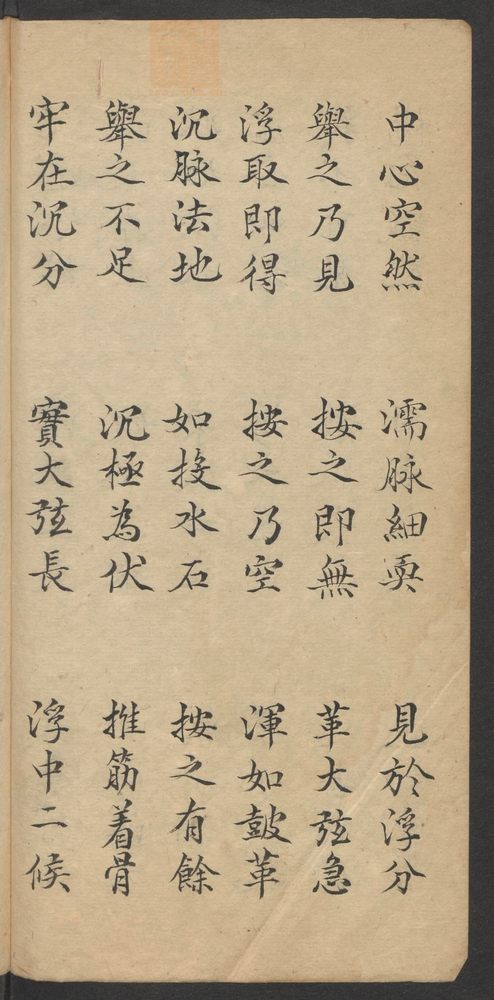 中心空然 濡脉細耎 見於浮分
舉之乃見 按之即無 革大弦急
浮取即得 按之乃空 渾如鼓革
沉脉法地 如投水石 按之有餘
舉之不足 沉極為伏 推筋着骨
牢在沉分 實大弦長 浮中二候